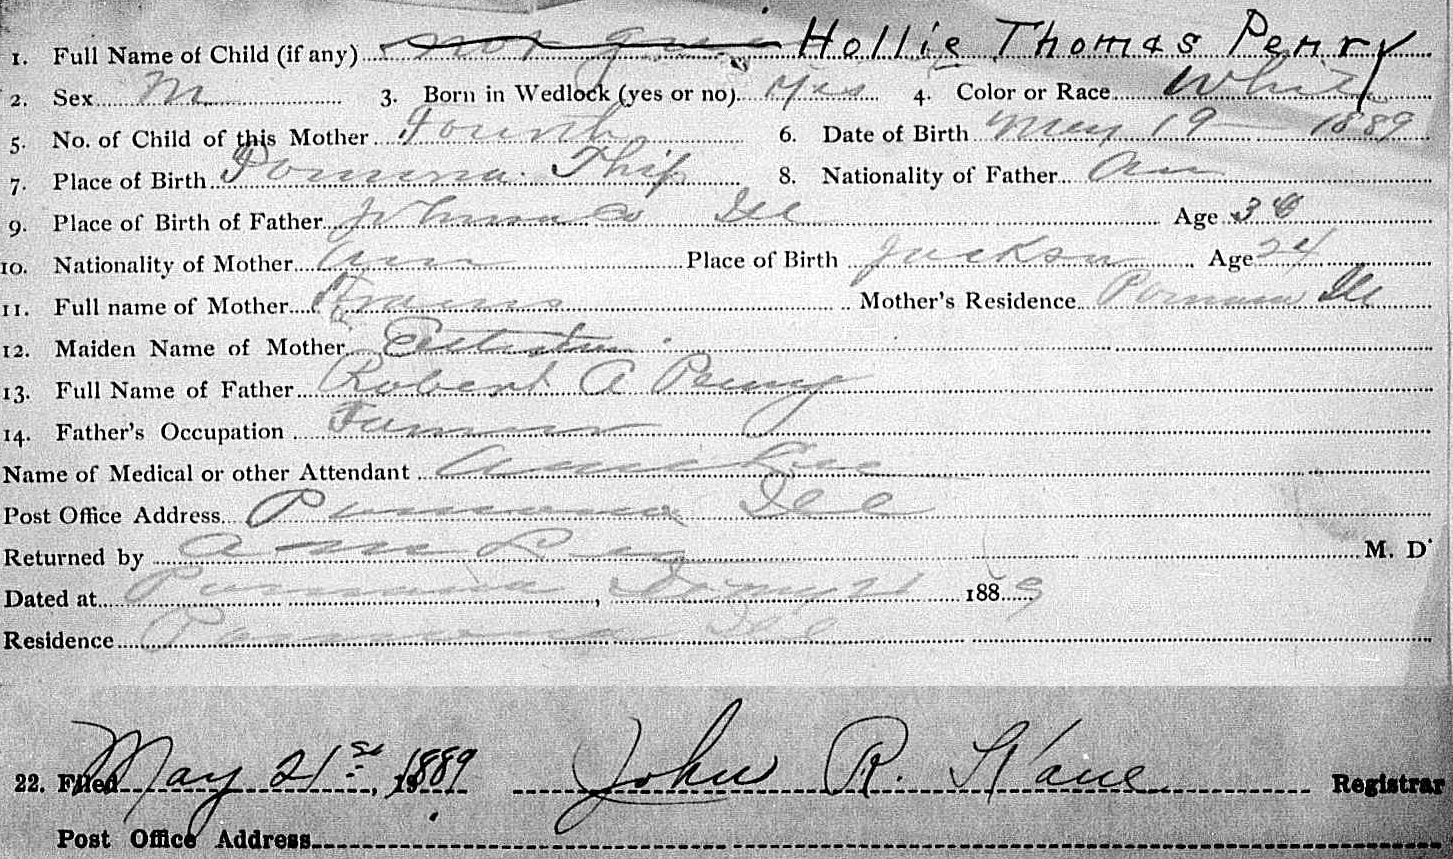 1. Full Name of Child (if any) not given Hollie Thomas Penry
2. Sex M 3. Born in Wedlock (yes or no) Yes 4. Color or Race White
5. No. of Child of this Mother Fourth 6. Date of Birth May 19 1889
7. Place of Birth Pomona Ship 8. Nationality of Father Am
9. Place of Birth of Father Johnson Co Ill Age
10. Nationality of Mother Am Place of Birth Jackson Age 24
11. Full name of Mother Mother's Residence Pomona Ill
12. Maiden Name of Mother
13. Full Name of Father Robert A Penry
14. Father's Occupation Farmer
Name of Medical or other Attendant
Post Office Address Pomona Ill
Returned by M. D.
Dated at Pomona, 1889
Residence Pomona Ill
22. Filed May 21st, 1889 John R. Kane Registrar
Post Office Address